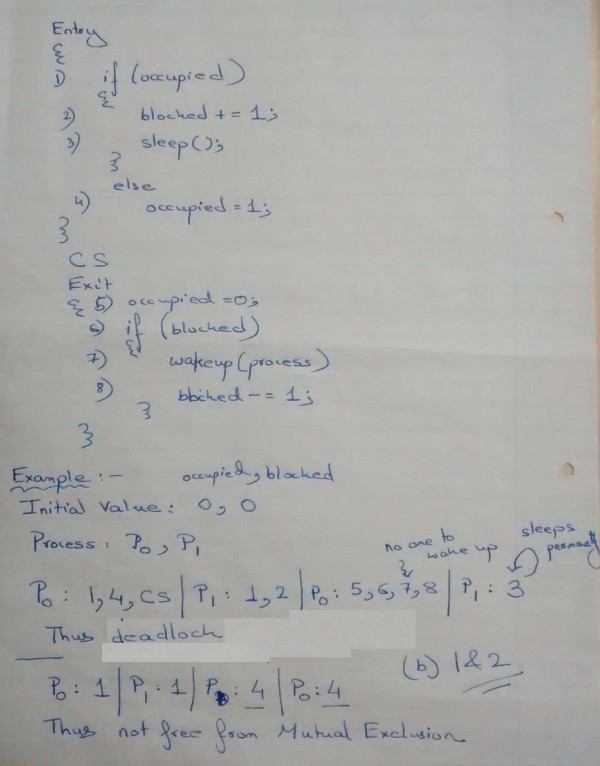 Entry
{
1) if (occupied)
{
2) blocked += 1;
3) sleep();
}
else
4) occupied = 1;
}
CS
Exit
{ 5) occupied =0;
6) if (blocked)
{
7) wakeup(process)
8) blocked -= 1;
}
}
Example :- occupied, blocked
Initial Value: 0, 0
Process: P0, P1
no one to wake up
sleeps
P0: 1,4,CS | P1: 1,2 | P0: 5,6,7,8 | P1: 3
Thus deadlock
(b) 1&2
P0: 1 | P1: 1 | : 4 | P0: 4
Thus not free from Mutual Exclusion